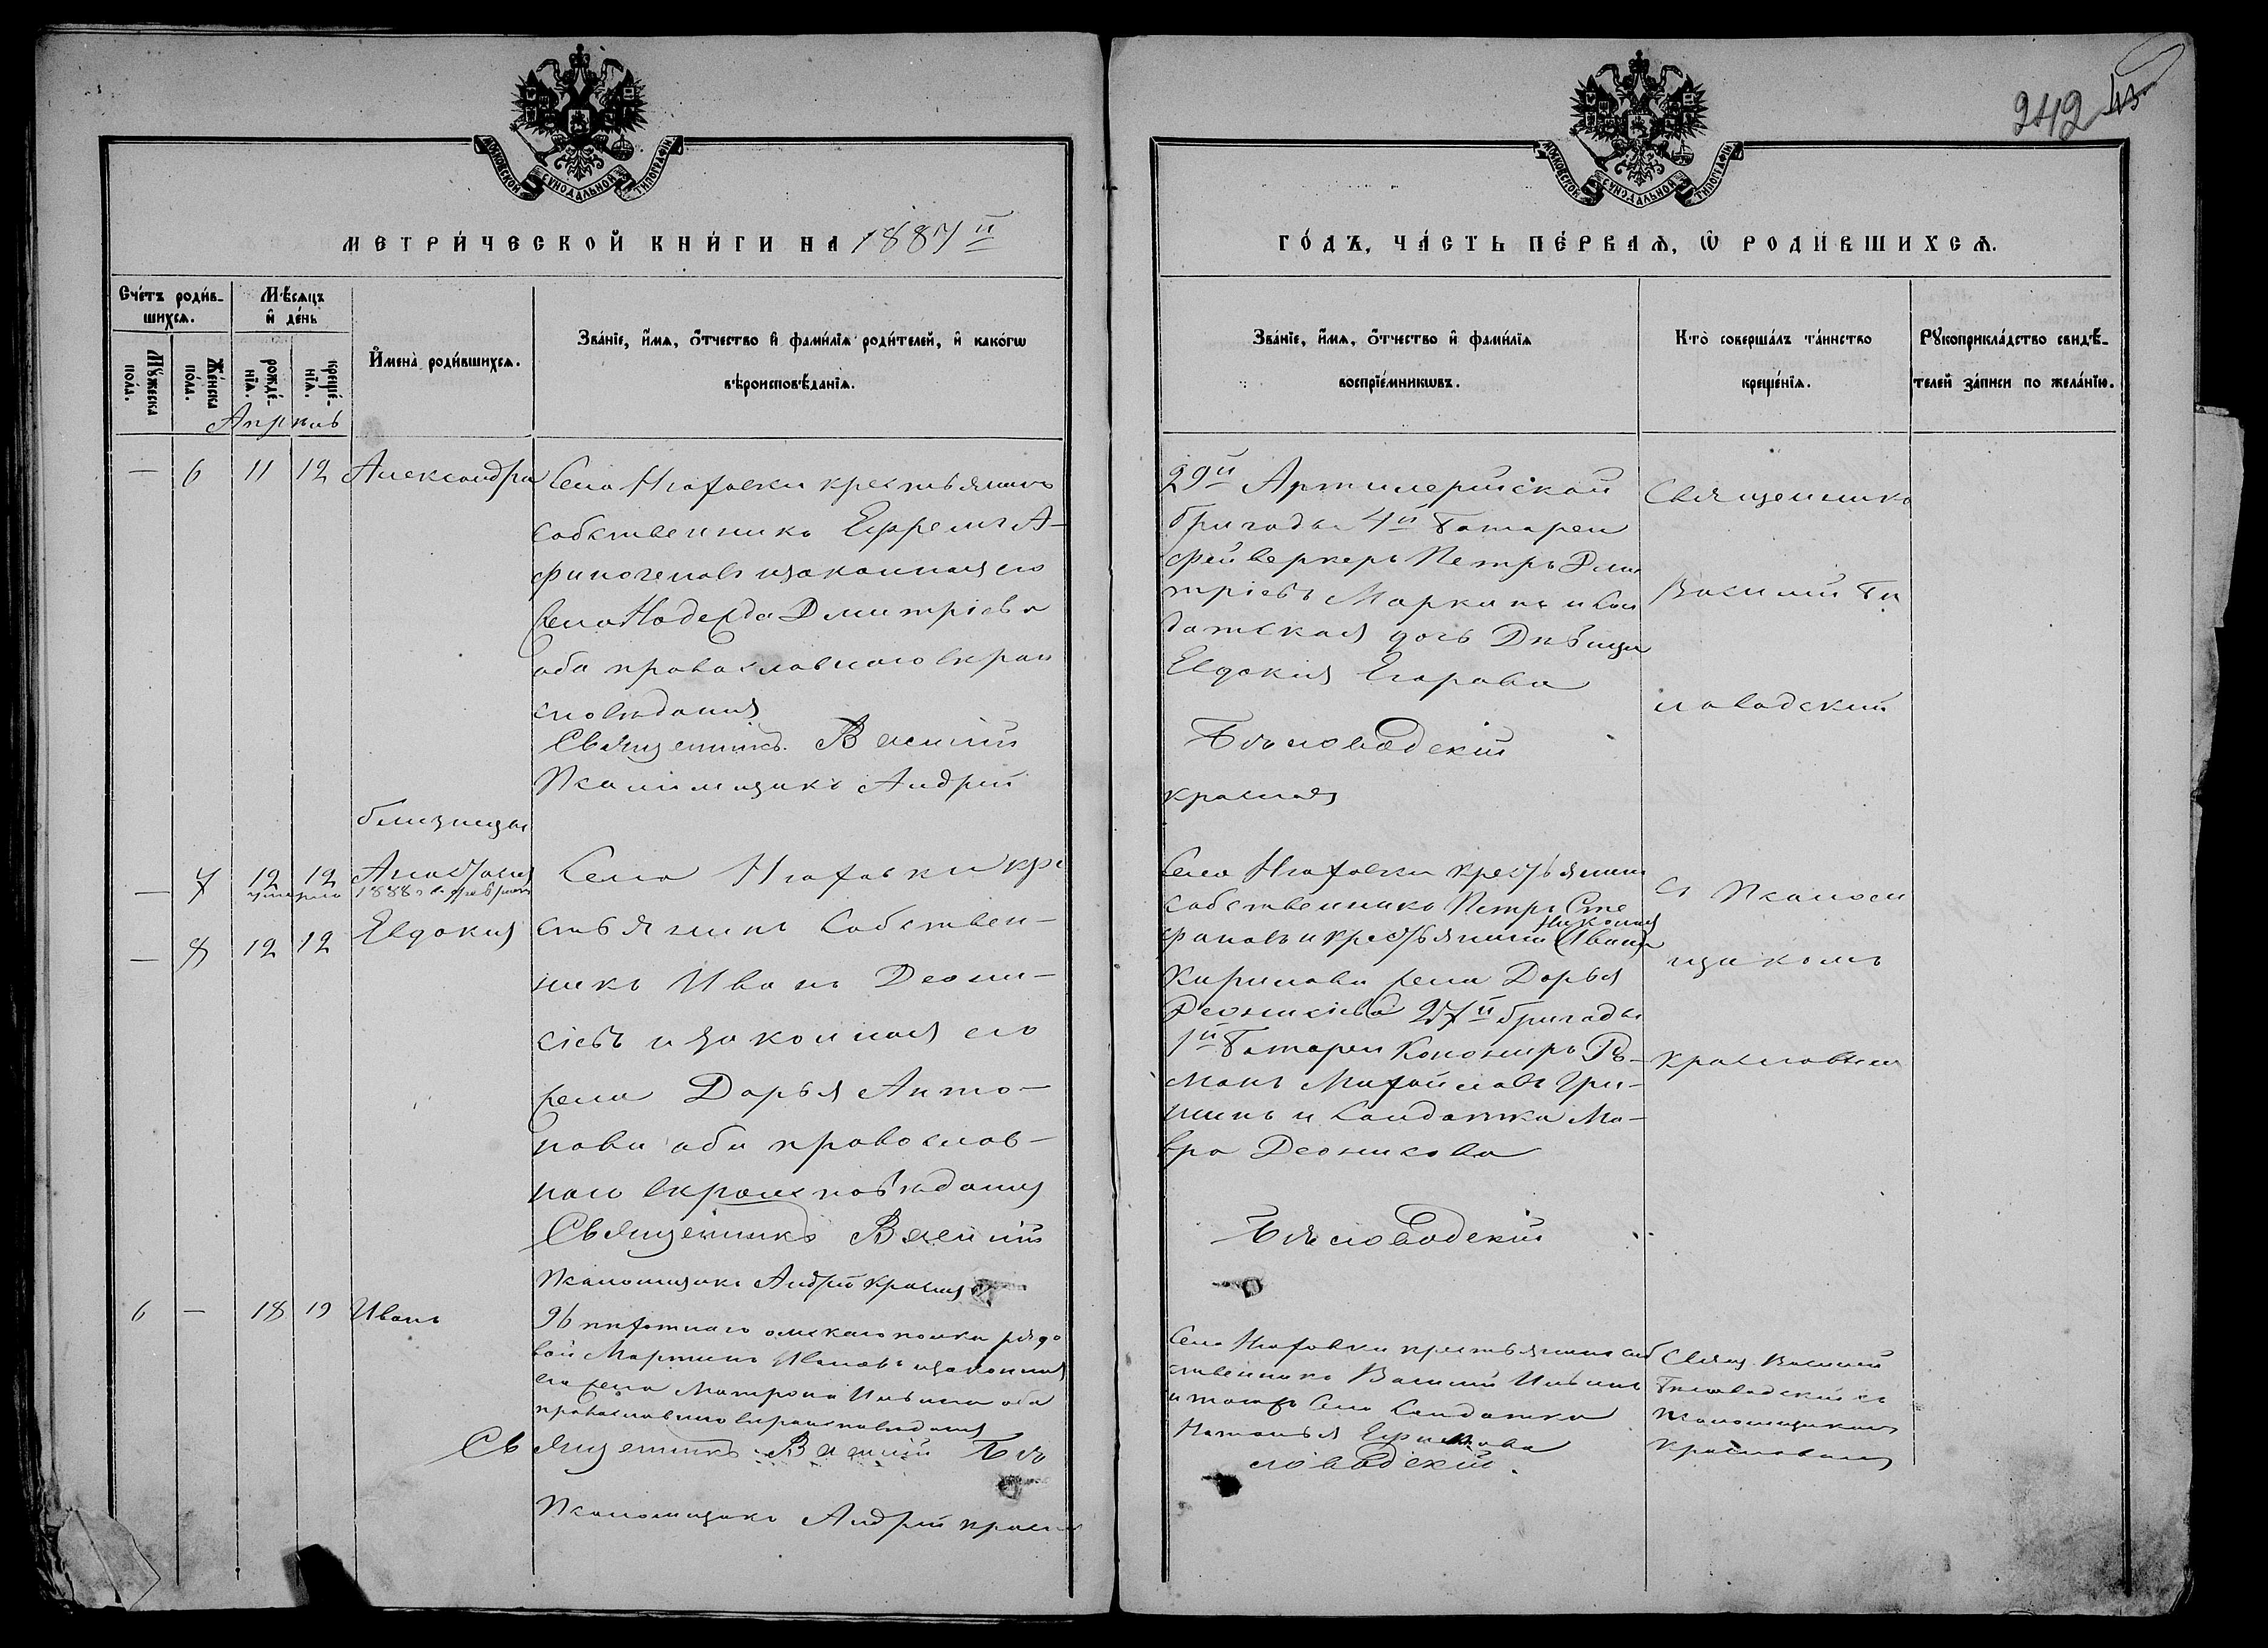 242
МОСКОВСКОЙ СѴНОДАЛЬНОЙ ТИПОГРАФІИ
МОСКОВСКОЙ СѴНОДАЛЬНОЙ ТИПОГРАФІИ
МЕТРИ́ЧЕСКОЙ КНИ́ГИ НА 1887й
ГО́ДЪ, ЧА́СТЬ ПЕ́РВАѦ, Ѡ РОДИ́ВШИХСѦ.
Сче́тъ роди́в-
шихсѧ.
Мꙋ́жеска
по́ла.
Же́нска
по́ла.
Мѣ́сѧцъ
и де́нь
рожде́-
нїѧ.
креще́-
нїѧ.
И҆мена̀ роди́вшихсѧ.
Зва́нїе, и҆́мѧ, о҆́тчество и҆ фами́лїѧ роди́телей, и҆ како́гѡ
вѣроисповѣ́данїѧ.
Зва́нїе, и҆́мѧ, о҆́тчество и҆ фами́лїѧ
воспрїе́мникѡвъ.
Кто̀ соверша́лъ та́инство
креще́нїѧ.
Рꙋкоприкла́дство свидѣ́-
телей за́писи по жела́нїю.
Апрѣль
— 6 11 12 Александра
Села Нюховки крестьянинъ
собственникъ Ефремъ А-
финогеновъ и законная его
жена Надежда Димитріева
оба православнаго вѣрои
сповѣданія
Священникъ Василій
Псаломщикъ Андрей
29й Артилерійской
бригады 4й батареи
фейверкеръ Петръ Дми
тріевъ Маркинъ и сол
датская дочь Дѣвица
Евдокія Егорова
Бѣловодскій
Краснов
Священникъ
Василій Бѣ
ловодскій
близнецы
— 7 12 12 Анастасія
умерла 1888 г. февраля
— 8 12 12 Евдокія
Села Нюховки кре
стьянинъ собствен-
никъ Иванъ Деони-
сіевъ и законная его
жена Дарья Анто-
нова оба православ-
наго вѣроисповѣданія
Священникъ Василій
Псаломщикъ Андрей Краснов
Села Нюховки крестьянинъ
собственникъ Петръ Сте
фановъ и крестьянина Ивана
Кирилова жена Дарья
Деонисіева 27й бригады
1й батареи Кононеръ Ро-
манъ Михайловъ Гри-
шинъ и солдатка Ма-
вра Деонисова
Бѣловодскій
съ Псалом
щикомъ
Красновымъ
6 — 18 19 Иванъ
96 пихотнаго омскаго полка рядо
вой Мартинъ Ивановъ и законная
его жена Матрона Ильина оба
православнаго вѣроисповѣданія
Священникъ Василій Бѣ
ловодскій
Псаломщикъ Андрей Краснов
Села Нюховки крестьянинъ соб
ственникъ Василій Ильинъ
и тогожъ села солдатка
Наталья Ефимова
Свящ. Василій
Бѣловодскій съ
Псаломщикомъ
Красновымъ